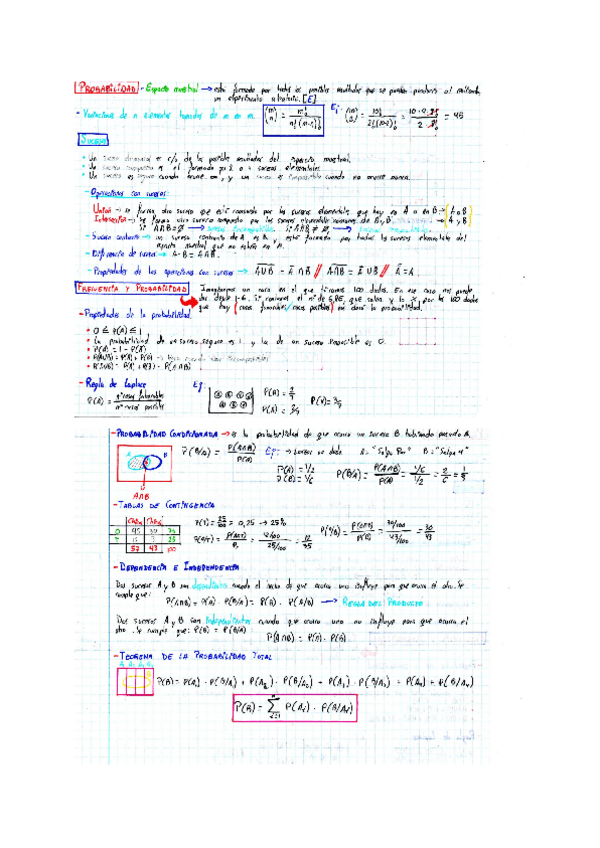 PROBABILIDAD - Espacio muestral → está formado por todos los posibles resultados que se pueden producir al realizar
un experimento aleatorio. [E].
- Variaciones de n elementos tomados de m en m. (m n) = m! / n!(m-n)! Ej: (10 2) = 10! / 2!(10-2)! = 10·9·8! / 2·8! = 45
SUCESOS
• Un suceso elemental es c/u de los posibles resultados del espacio muestral.
• Un suceso compuesto es el formado por 2 o + sucesos elementales.
• Un suceso es seguro cuando ocurre y un suceso es imposible cuando no ocurre nunca.
- Operaciones con sucesos:
Unión → se forma otro suceso que está compuesto por los sucesos elementales que hay en A o en B → A o B
Intersección → se forma otro suceso compuesto por los sucesos elementales comunes de A y B. A y B
Si A∩B = Ø → sucesos incompatibles. Si A∩B ≠ Ø → sucesos compatibles.
- Suceso contrario → un suceso contrario de A es Ā, y está formado por todos los sucesos elementales del
espacio muestral que no están en A.
- Diferencia de sucesos → A-B = A∩B̄.
- Propiedades de las operaciones con sucesos →
FRECUENCIA Y PROBABILIDAD Imaginemos un caso en el que tiramos 100 dados. En ese caso nos puede
dar desde 1-6. Si
que hay (casos favorables/casos posibles) nos dará la probabilidad.
- Propiedades de la probabilidad.
• 0 ≤ P(A) ≤ 1
• La probabilidad de un suceso seguro es 1 y la de un suceso imposible es 0.
• P(A) = 1 - P(Ā)
• P(A∪B) = P(A) + P(B) →
• P(A∪B) = P(A) + P(B) - P(A∩B)
- Regla de Laplace Ej:
P(A) = nº casos favorables / nº casos posibles
- PROBABILIDAD CONDICIONADA → es la probabilidad de que ocurra un suceso B habiendo pasado A.
A B P(B/A) = P(A∩B) / P(A) Ej: → Lanzar un dado A = "Salga Par" B = "Salga 4"
P(A) = 1/2
P(B) = 1/6 P(B/A) = P(A∩B) / P(A) = 1/6 / 1/2 = 2/6 = 1/3
A∩B
- TABLAS DE CONTINGENCIA
57 43 100
= 0,25 → 25%
30/100 / 43/100 = 30/43
12/100 / 25/100 = 12/25
- DEPENDENCIA E INDEPENDENCIA
Dos sucesos A y B son dependientes cuando el hecho de que ocurra uno influye para que ocurra el otro. Se
cumple que:
P(A∩B) = P(A) · P(B/A) = P(B) · P(A/B) → REGLA DEL PRODUCTO
Dos sucesos A y B son independientes cuando que ocurra uno no influye para que ocurra el
otro. Se cumple que: P(B) = P(B/A)
P(A∩B) = P(A) · P(B)
- TEOREMA DE LA PROBABILIDAD TOTAL
A₁ A₂ A₃ A₄
P(B) = P(A₁) · P(B/A₁) + P(A₂) · P(B/A₂) + P(A₃) · P(B/A₃) + P(A₄) · P(B/A₄)
P(B) = Σ P(Aᵢ) · P(B/Aᵢ)